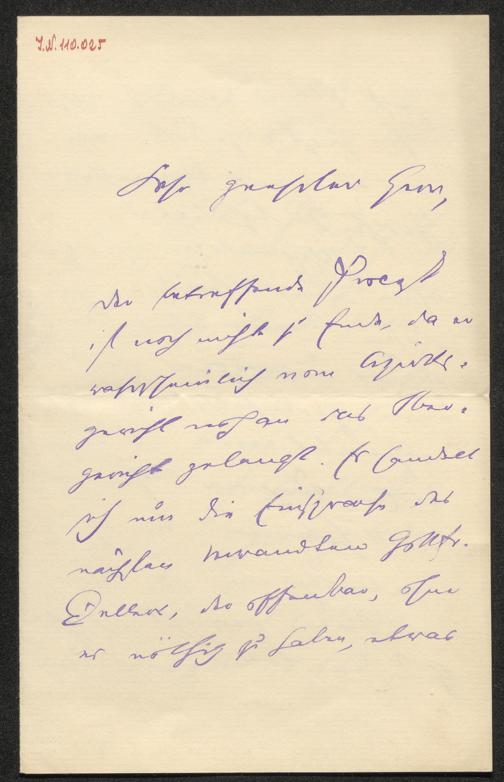 J.N. 110.025
Sehr geehrter Herr,
der betreffende Proceß
ist noch nicht zu Ende, da er
wahrscheinlich vom Bezirks-
gericht noch an das Ober-
gericht gelangt. Es handelt
sich um die Einsprache des
nächsten Verwandten Gottfr.
Kellers, der offenbar, ohne
es nöthig zu haben, etwas